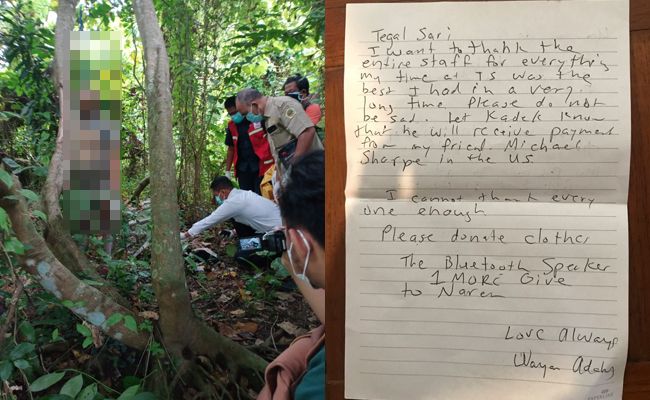 Tegal Sari
I want to thank the
entire staff for everything
my time at TS was the
best I had in a very
long time Please do not
be sad. Let Kadek know
that he will receive payment
from my friend. Michael
Sharpe in the US
I cannot thank every
one enough
Please donate clothes
The Bluetooth Speaker
1 MORE Give
to Naren
Love Always
Wayan